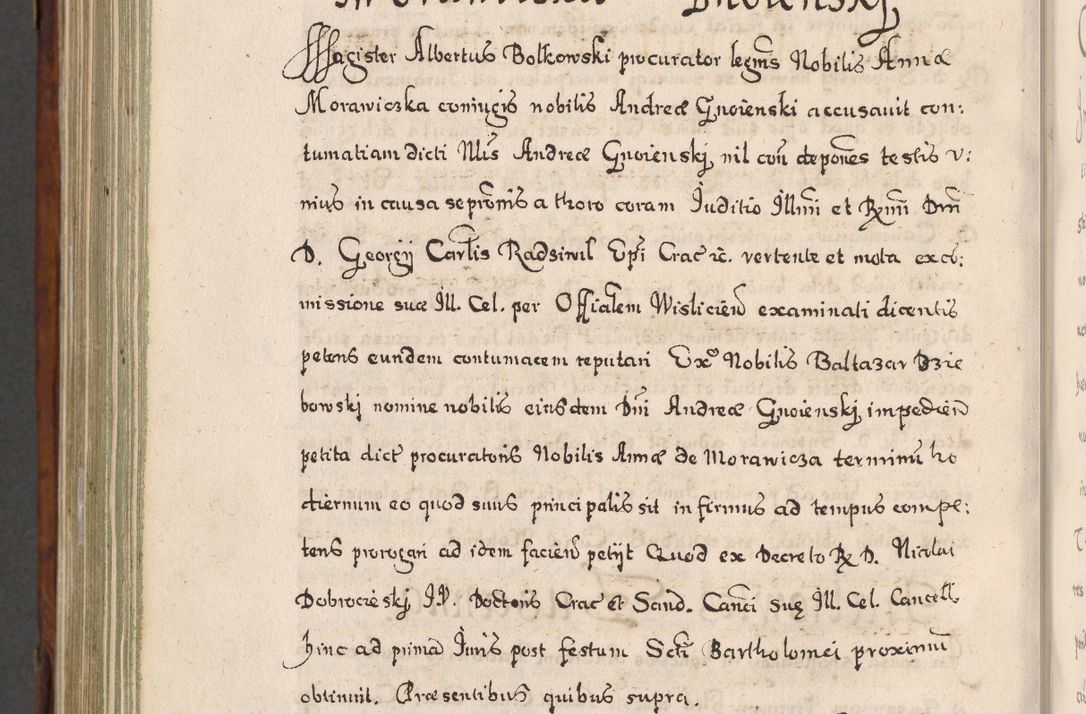 Gnoiensky
Magister Albertus Bolkowski procurator legms Nobilis Annæ
Morawiczka coniugis nobilis Andreæ Gnoienski accusavit con:
tumatiam dicti Nlis Andreæ Gnoienskj, nil con deponēs testis v:
nius in causa seprōnis a thoro coram Iuditio Illmi et Rmi Dni
D. Georgij Carlis Radziwil Epi Crac ic. vertente et mota ex cō:
missione suæ Ill. Cel. per Officialem Wislicien examinati dicentis
petens eundem contumacem reputari Exo Nobilis Baltazar Dzie
bowski nomine nobilis eiusdem Dni Andreæ Gnoienskj impedien
petita dict procuratoris Nobilis Annæ de Morawicza terminū ho
diernum eo quod suus principalis sit infirmus ad tempus compe:
tens prorogari ad idem facien petijt Quod ex Decreto R D. Nicolai
Dobrocieskj I.V. Doctoris Crac et Sand. Canci suę Ill. Cel. Cancell
hinc ad primā Iuris post festum Scti Bartholomei proximū
obtinuit. Præsentibus quibus supra.